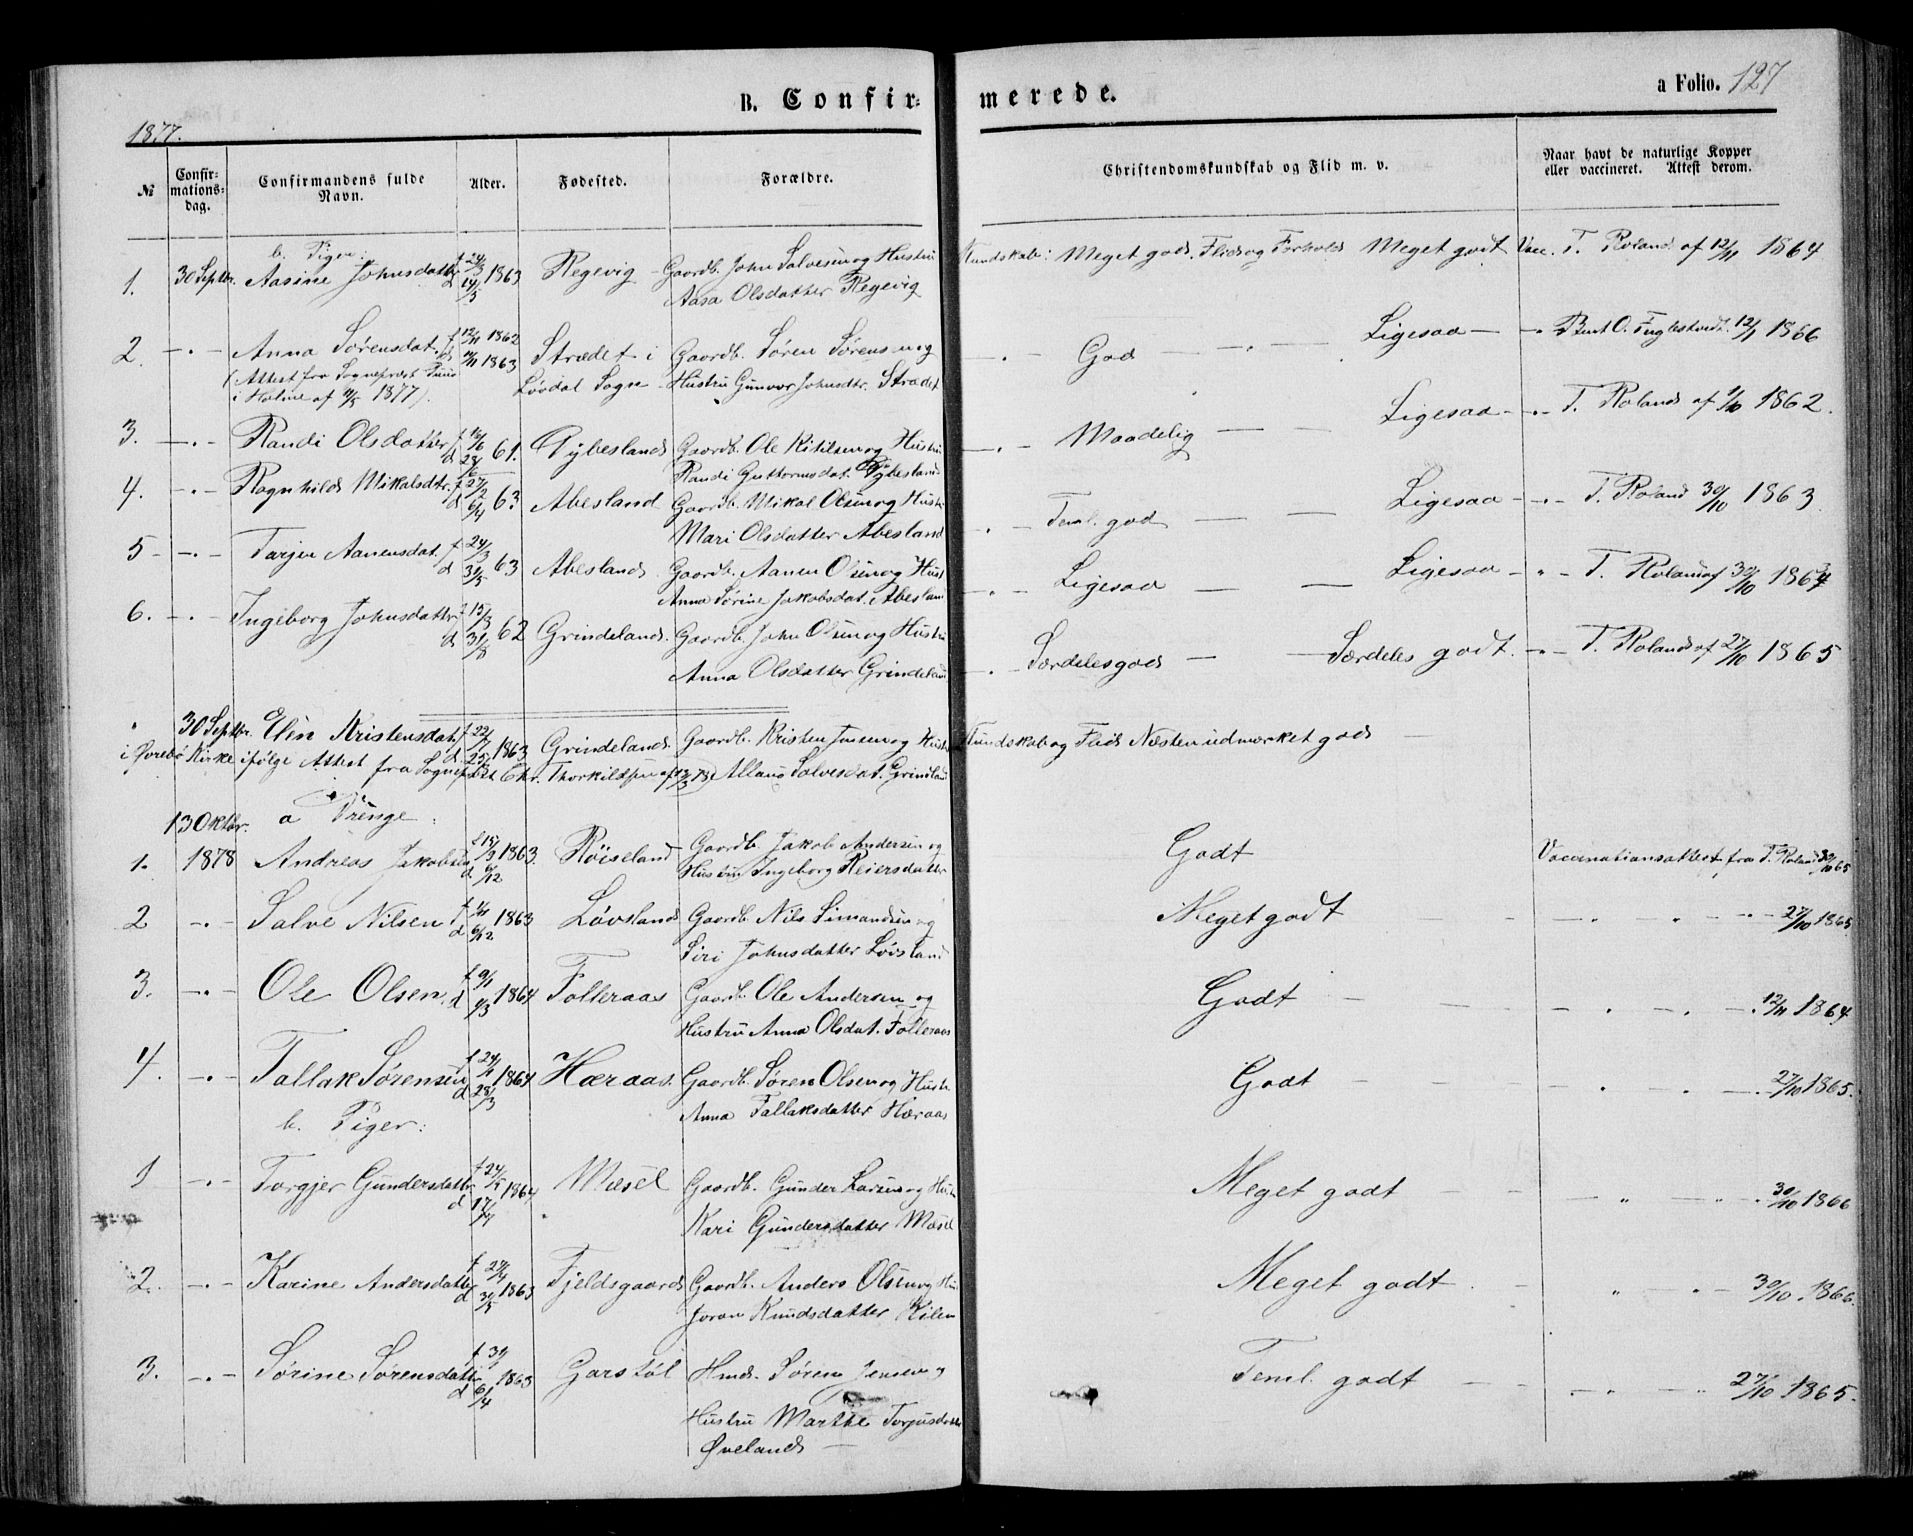 B. Confir-
merede.
a Folio. 127
1877.
№
Confir-
mations-
dag.
Confirmandens fulde
Navn.
Alder.
Fødested.
Forældre.
Christendomskundskab og Flid m. v.
Naar havt de naturlige Kopper
eller vaccineret. Attest derom.
b. Piger:
1. 30 Septbr. Aasine Johnsdatter f 24/3 d 14/5 1863 Regevig Gaardb. John Salvesen og Hustru
Aasa Olsdatter Regevig
Kundskab: Meget god. Flid og Forhold Meget godt Vacc. T. Roland af 12/11 1864
2 -"- Anna Sørensdat. f 12/11 1862 d 1863 Strædet i Gaardb. Søren Sørensen og
(Attest fra Sognepræst
i Holme af 1877). Løvdal Sogn Hustru Gunvor Johnsdtr. Strædet
-"- God -"- Ligesaa -"- Bent O. 12/1 1866
3. -"- Randi Olsdatter f d 28/6 61. Gybesland Gaardb. Ole Kittilsen og Hustru
Randi Guttormsdat. Gybesland
-"- Maadelig Ligesaa -"- T. Roland af 1/10 1862.
4. -"- Ragnhild Mikalsdtr. f 27/2 d 6/4 63 Abesland Gaardb. Mikal Olsen og Hust.
Mari Olsdatter Abesland
-"- Teml. god Ligesaa -"- T. Roland 30/10 1863.
5 -"- Tarjer Aanensdat. f 24/3 d 31/5 63 Abesland Gaardb. Aanen Olsen og Hust
Anna Sørine Jakobsdat. Abesland
-"- Ligesaa Ligesaa -"- T. Roland af 30/10 1864
6. -"- Ingeborg Johnsdatter f 15/3 d 31/8 62 Grindeland. Gaardb. John Olsen og Hustru
Anna Olsdatter Grindeland
-"- Særdeles god Særdeles godt. -"- T. Roland af 27/10 1865
" 30 Septbr. Elen Kristensdat. f 22/7 d 25/ 1863 Grindeland. Gaardb. Kristen Jensen og Hustr
i Øvrebø Kirke ifølge Attest fra Sognepræst Chr. Thorkildsen af Salvesdat. Grindland
Kundskab og Flid Næsten udmærket god
13 Oktbr. a Drenge:
1. 1878 Andreas Jakobsen f 18/9 d 6/12 1863. Røiseland Gaardb. Jakob Andersen og
Hustru Ingeborg Reiersdatter
Godt Vaccinationsattest fra T. Roland 30/10 65
2 -"- Salve Nilsen f d 6/12 1863 Løvsland Gaardb. Nils Simondsen og
Siri Johnsdatter Løvsland
Meget godt -"- 27/10 1865
3. -"- Ole Olsen. f 9/1 d 1/3 1864 Folleraas Gaardb. Ole Andersen og
Hustru Anna Olsdat. Folleraas
Godt -"- 12/11 1864.
4. -"- Tallak Sørensen f 24/1 d 28/3 1864 Høraas. Gaardb. Søren Olsen og Hustr
Anna Tallaksdatter Høraas
Godt -"- 27/10 1865.
b. Piger:
1 -"- Torgjer Gundersdatter f d 17/7 1864 Mæsel Gaardb. Gunder Larsen og Hust
Kari Gundersdatter Mæsel
Meget godt -"- 30/10 1866
2. -"- Karine Andersdatter f 27/4 d 31/5 1863 Fjeldsgaard Gaardb. Anders Olsen og Hu
Joran Knudsdatter Kilen
Meget godt -"- 30/10 1866.
3. -"- Sørine Sørensdatter f 31/1 d 6/4 1863 Garstøl Hmd. Søren Jensen og
Hustru Marthe Torjusdatter
Øveland
Teml. godt -"- 27/10 1865.